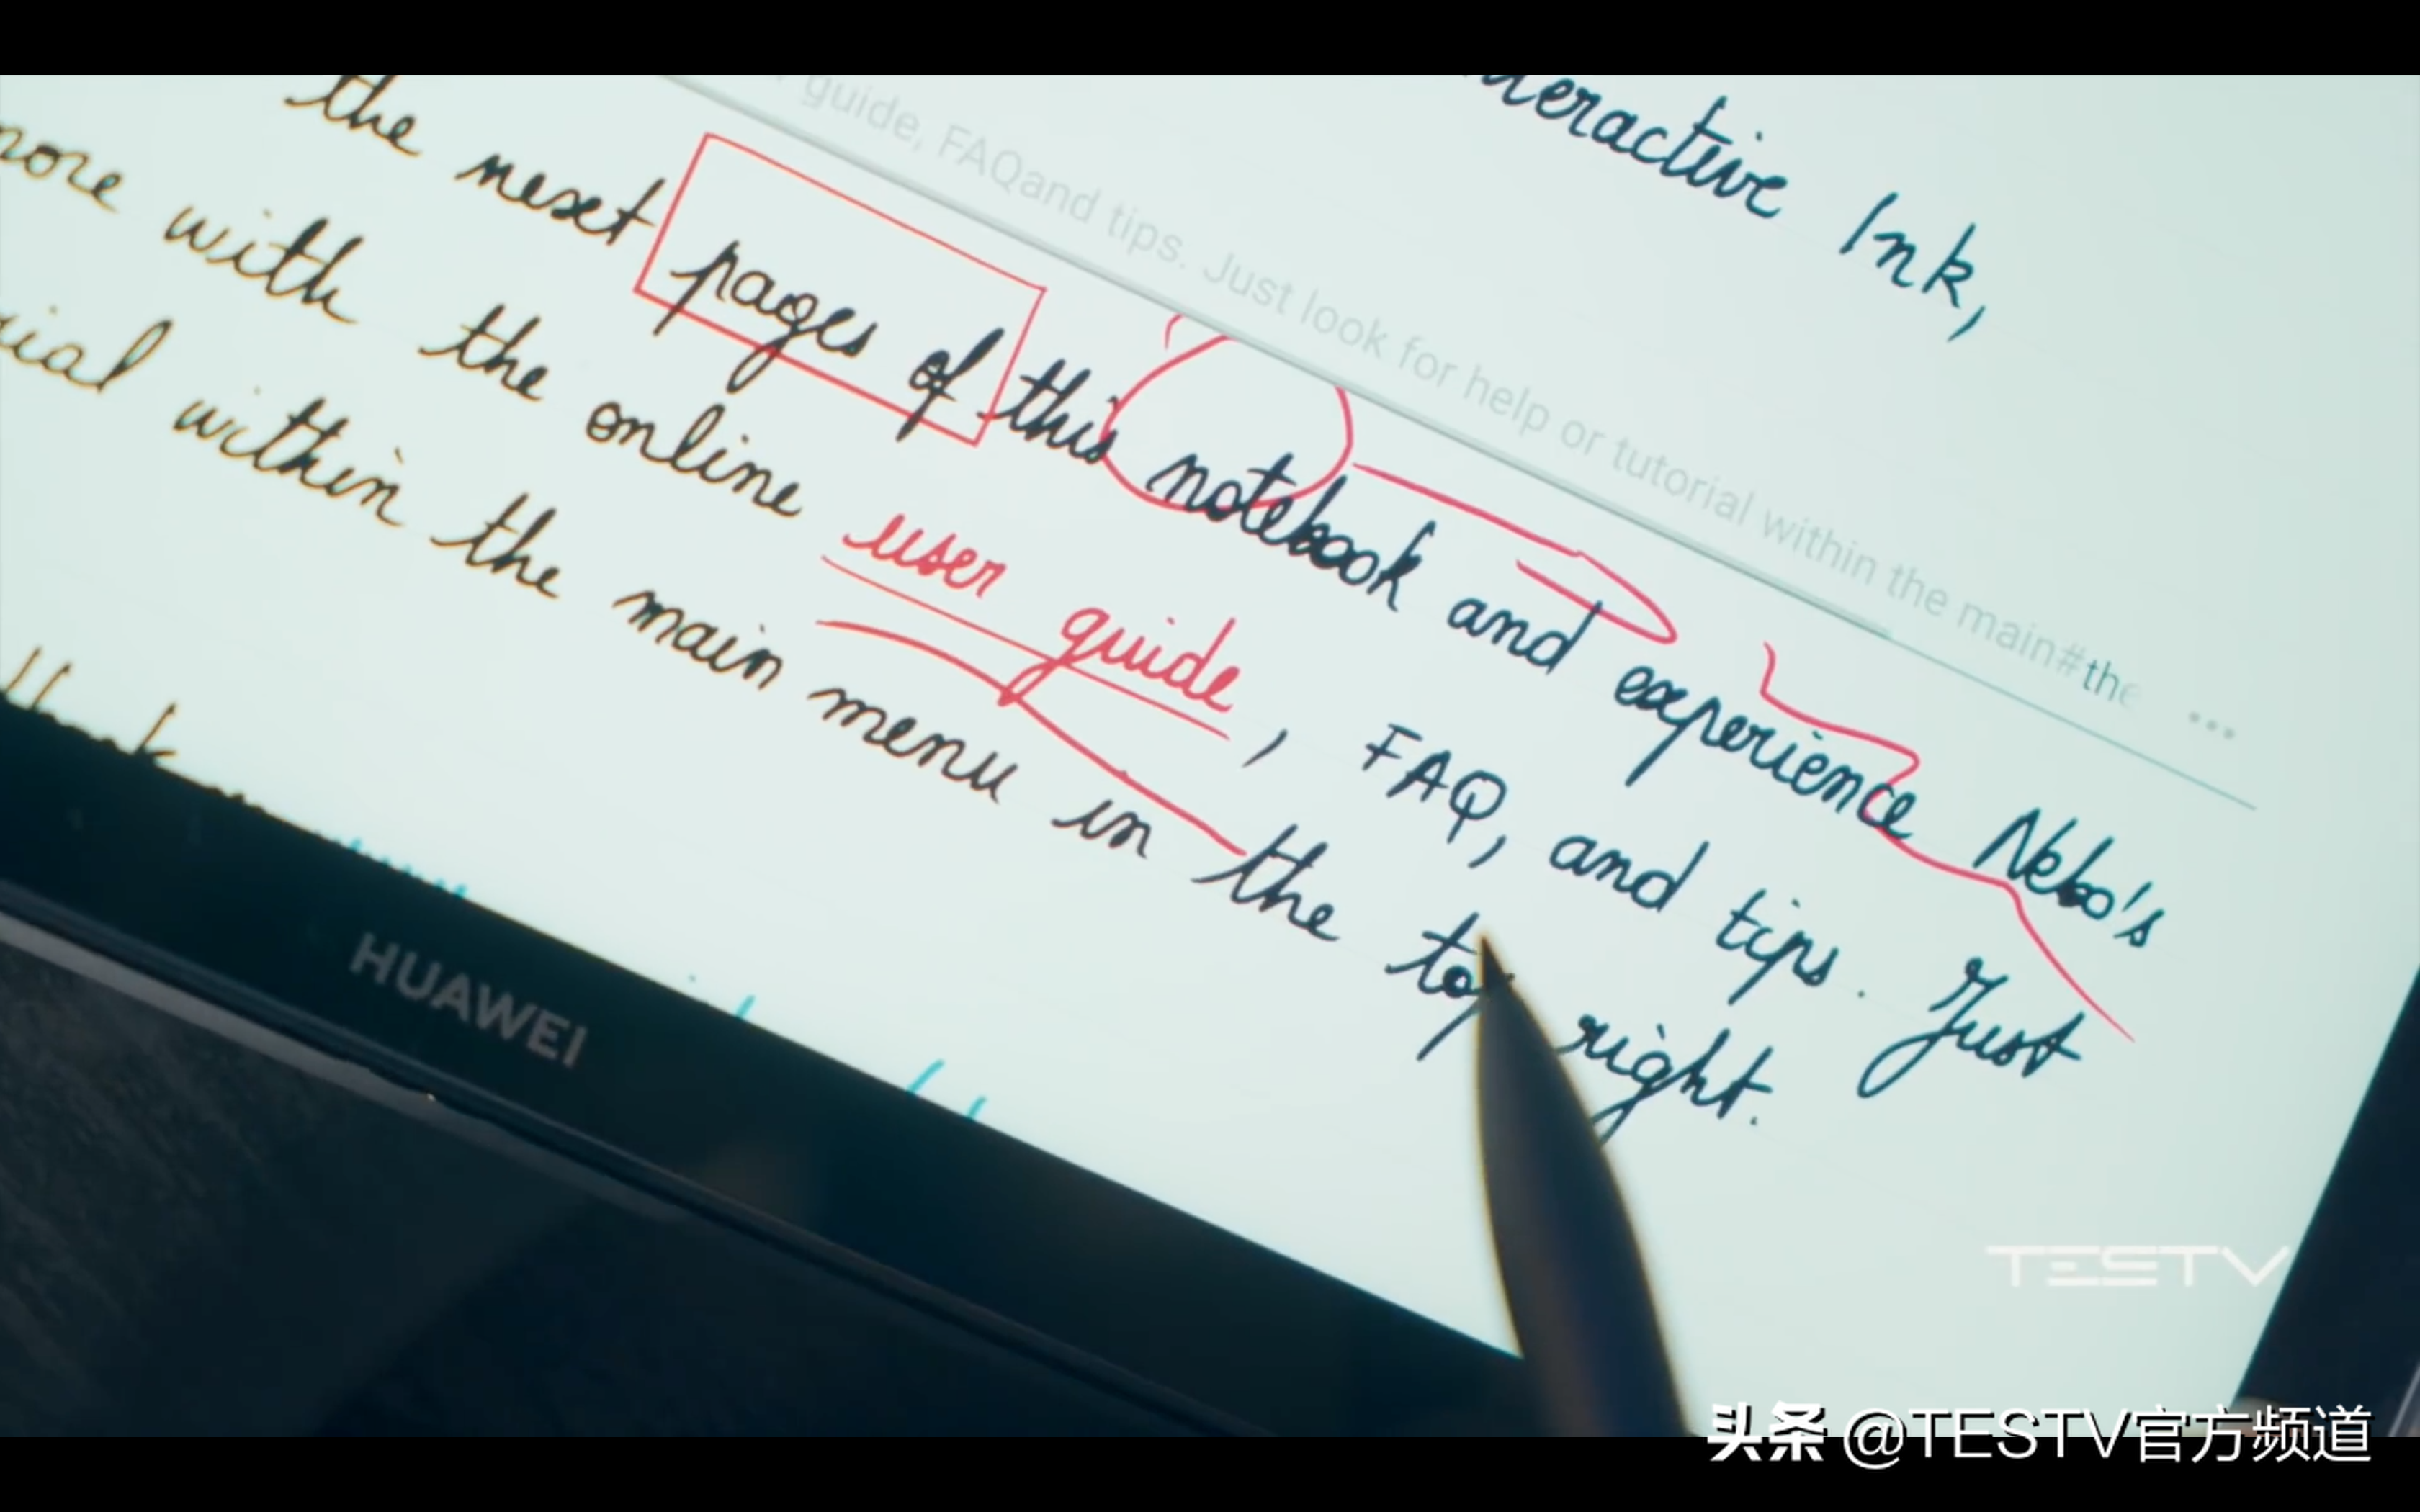 guide, FAQand tips. Just look for help or tutorial within the main#the ...
Ink,
the next pages of this notebook and experience Nebo's
more with the online user guide, FAQ, and tips. Just
within the main menu in the top right.
HUAWEI
TESTV
头条 @TESTV官方频道